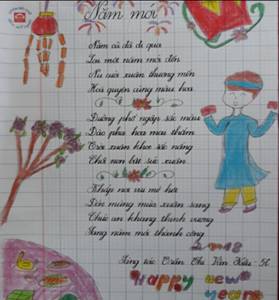 Năm mới
Năm cũ đã đi qua
Lại một năm mới đến
Nụ cười xuân thương mến
Hoà quyện cùng màu hoa
Đường phố ngập sắc màu
Đào phai hoa mau thắm
Trời xuân khoe sắc nắng
Chồi non bật sức xuân
Khắp nơi vui mở hội
Đón mừng mùa xuân sang
Chúc an khang thịnh vượng
Sang năm mới thành công
2018
Sáng tác: Trần Thị Vân
Happy new year